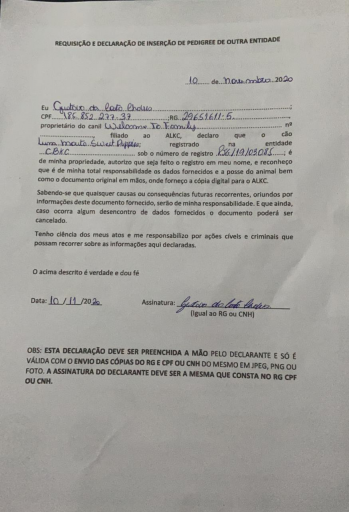 REQUISIÇÃO E DECLARAÇÃO DE INSERÇÃO DE PEDIGREE DE OUTRA ENTIDADE
10 de novembro 2020
Eu Gustavo da
CPF 186.852.277-37 ;RG. 29651611-5
proprietário do canil Welcome To Family nº
, filiado ao ALKC, declaro que o cão
Sweet registrado na entidade
CBKC sob o número de registro RSG/19/03085 ; é
de minha propriedade, autorizo que seja feito o registro em meu nome, e reconheço
que é de minha total responsabilidade os dados fornecidos e a posse do animal bem
como o documento original em mãos, onde forneço a cópia digital para o ALKC.
Sabendo-se que quaisquer causas ou consequências futuras recorrentes, oriundos por
informações deste documento fornecido, serão de minha responsabilidade. E que ainda,
caso ocorra algum desencontro de dados fornecidos o documento poderá ser
cancelado.
Tenho ciência dos meus atos e me responsabilizo por ações cíveis e criminais que
possam recorrer sobre as informações aqui declaradas.
O acima descrito é verdade e dou fé
Data: 10/11/2020 Assinatura:
(Igual ao RG ou CNH)
OBS: ESTA DECLARAÇÃO DEVE SER PREENCHIDA A MÃO PELO DECLARANTE E SÓ É
VÁLIDA COM O ENVIO DAS CÓPIAS DO RG E CPF OU CNH DO MESMO EM JPEG, PNG OU
FOTO. A ASSINATURA DO DECLARANTE DEVE SER A MESMA QUE CONSTA NO RG CPF
OU CNH.